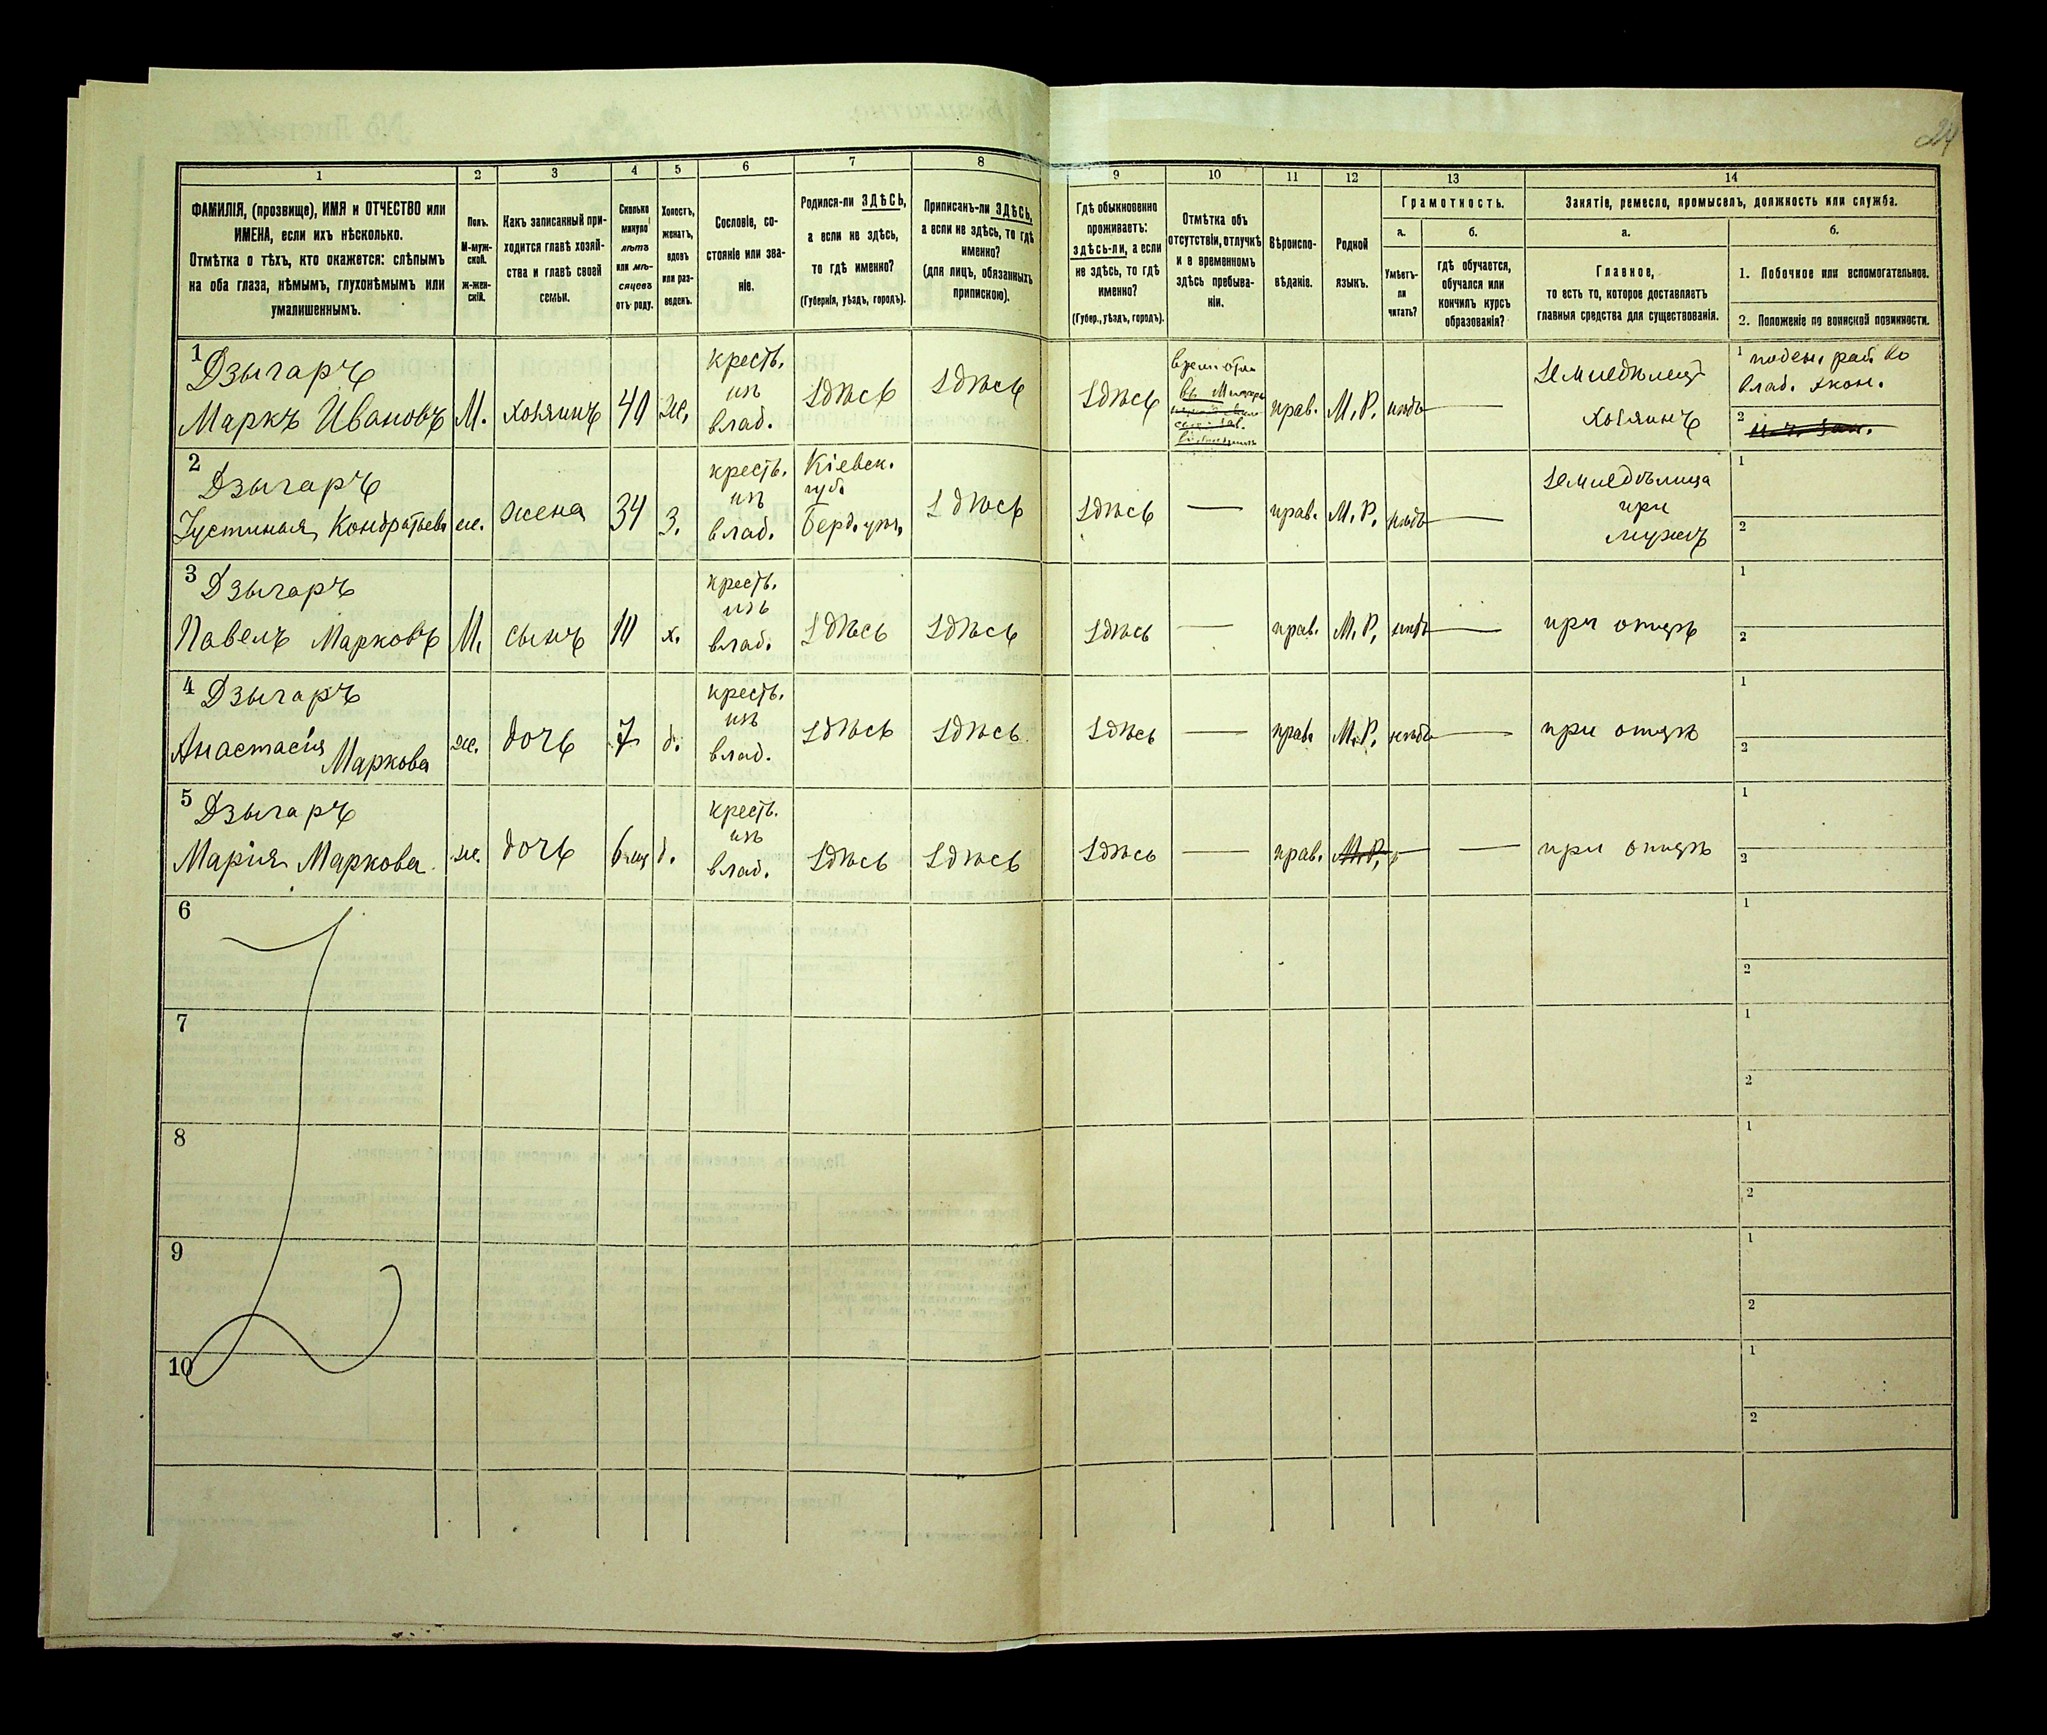 24
1 2 3 4 5 6 7 8 9 10 11 12 13 14
ФАМИЛІЯ, (прозвище), ИМЯ и ОТЧЕСТВО или
ИМЕНА, если ихъ нѣсколько.
Отмѣтка о тѣхъ, кто окажется: слѣпымъ
на оба глаза, нѣмымъ, глухонѣмымъ или
умалишеннымъ.
Полъ.
М-муж-
ской.
ж-жен-
скій.
Какъ записанный при-
ходится главѣ хозяй-
ства и главѣ своей
семьи.
Сколько
минуло
лѣтъ
или мѣ-
сяцевъ
отъ роду.
Холостъ,
женатъ,
вдовъ
или раз-
веденъ.
Сословіе, со-
стояніе или зва-
ніе.
Родился-ли ЗДѢСЬ,
а если не здѣсь,
то гдѣ именно?
(Губернія, уѣздъ, городъ).
Приписанъ-ли ЗДѢСЬ,
а если не здѣсь, то гдѣ
именно?
(для лицъ, обязанныхъ
припискою).
Гдѣ обыкновенно
проживаетъ:
здѣсь-ли, а если
не здѣсь, то гдѣ
именно?
(Губер., уѣздъ, городъ).
Отмѣтка объ
отсутствіи, отлучкѣ
и о временномъ
здѣсь пребыва-
ніи.
Вѣроиспо-
вѣданіе.
Родной
языкъ.
Грамотность.
а.
Умѣетъ-
ли
читать?
б.
гдѣ обучается,
обучался или
кончилъ курсъ
образованія?
Занятіе, ремесло, промыселъ, должность или служба.
а.
Главное,
то есть то, которое доставляетъ
главныя средства для существованія.
б.
1. Побочное или вспомогательное.
2. Положеніе по воинской повинности.
1
Дзыгаръ
Маркъ Ивановъ
М.
хозяинъ
40
ж.
крестьян.
изъ
влад.
здѣсь
здѣсь
здѣсь
прав.
М.Р.
нѣтъ
—
Земледѣлецъ
хозяинъ
1 поден. раб. во
влад. экон.
2
2
Дзыгаръ
Іустинья Кондратьева
ж.
жена
34
З.
крестьян.
изъ
влад.
Кіевск.
губ.
Берд. уѣз.
здѣсь
здѣсь
—
прав.
М.Р.
нѣтъ
—
Земледѣлица
при
мужѣ
1
2
3
Дзыгаръ
Павелъ Марковъ
М.
сынъ
10
х.
крестьян.
изъ
влад.
здѣсь
здѣсь
здѣсь
—
прав.
М.Р.
нѣтъ
—
при отцѣ
1
2
4
Дзыгаръ
Анастасія Маркова
ж.
дочь
7
д.
крестьян.
изъ
влад.
здѣсь
здѣсь
здѣсь
—
прав.
М.Р.
нѣтъ
—
при отцѣ
1
2
5
Дзыгаръ
Марія Маркова
ж.
дочь
6 мц
д.
крестьян.
изъ
влад.
здѣсь
здѣсь
здѣсь
—
прав.
М.Р.
—
—
при отцѣ
1
2
6
1
2
7
1
2
8
1
2
9
1
2
10
1
2